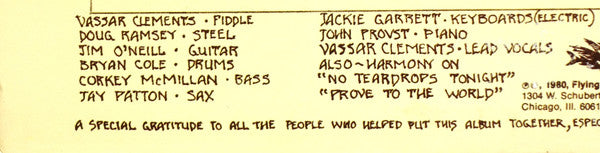 VASSAR CLEMENTS · FIDDLE
DOUG RAMSEY · STEEL
JIM O'NEILL · GUITAR
BRYAN COLE · DRUMS
CORKEY McMILLAN · BASS
JAY PATTON · SAX
JACKIE GARRETT · KEYBOARDS (ELECTRIC)
JOHN PROVST · PIANO
VASSAR CLEMENTS · LEAD VOCALS
ALSO ~ HARMONY ON
"NO TEARDROPS TONIGHT"
"PROVE TO THE WORLD"
©℗, 1980, Flying
1304 W. Schubert
Chicago, Ill. 6061
A SPECIAL GRATITUDE TO ALL THE PEOPLE WHO HELPED PUT THIS ALBUM TOGETHER, ESPEC